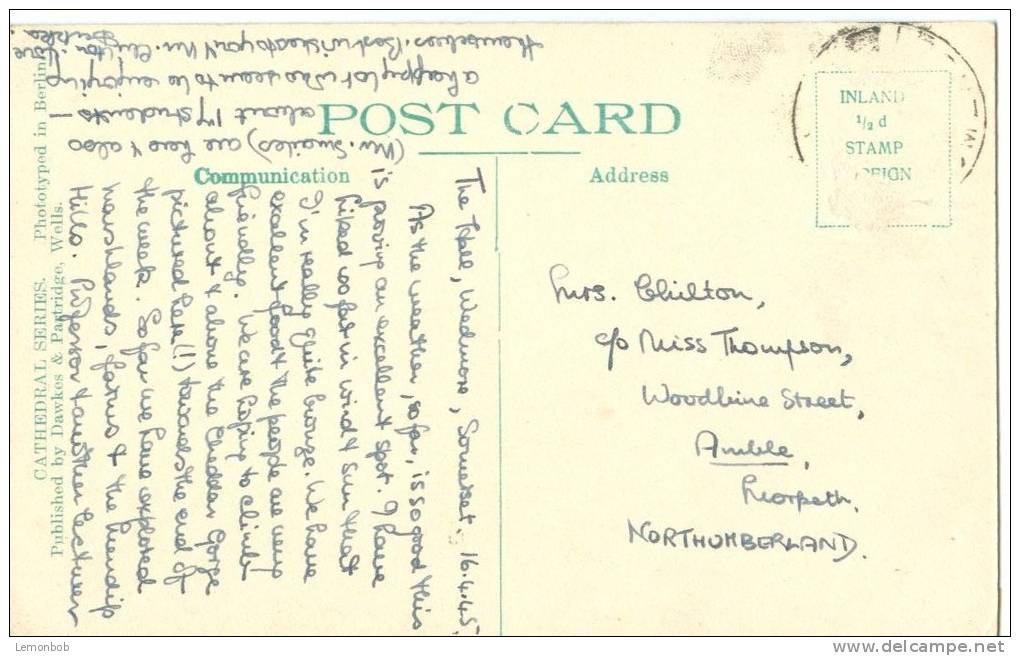 POST CARD
Communication
Address
INLAND
½ d
STAMP
CATHEDRAL SERIES. Phototyped in Berlin
Published by Dawkes & Partridge, Wells.
The Hall, Wedmore, Somerset. 16.4.45.
As the weather, so far, is so good this
is proving an excellent spot. I have
hiked so far in wind & sun that
I'm really quite bronze. We have
excellent food & the people are very
friendly. We are hoping to climb
about & above the Cheddar Gorge
pictured here (!) towards the end of
the week. So far we have explored
marshlands, farms & the Mendip
Hills. Professor & another lecturer
(Mr. Smailes) are here & also
about 17 students —
a happy lot who seem to be enjoying
themselves. Best wishes to you & Mr. Chilton. Love
Mrs. Chilton,
c/o Miss Thompson,
Woodbine Street,
Amble,
Morpeth.
NORTHUMBERLAND.
Lemonbob
www.delcampe.net